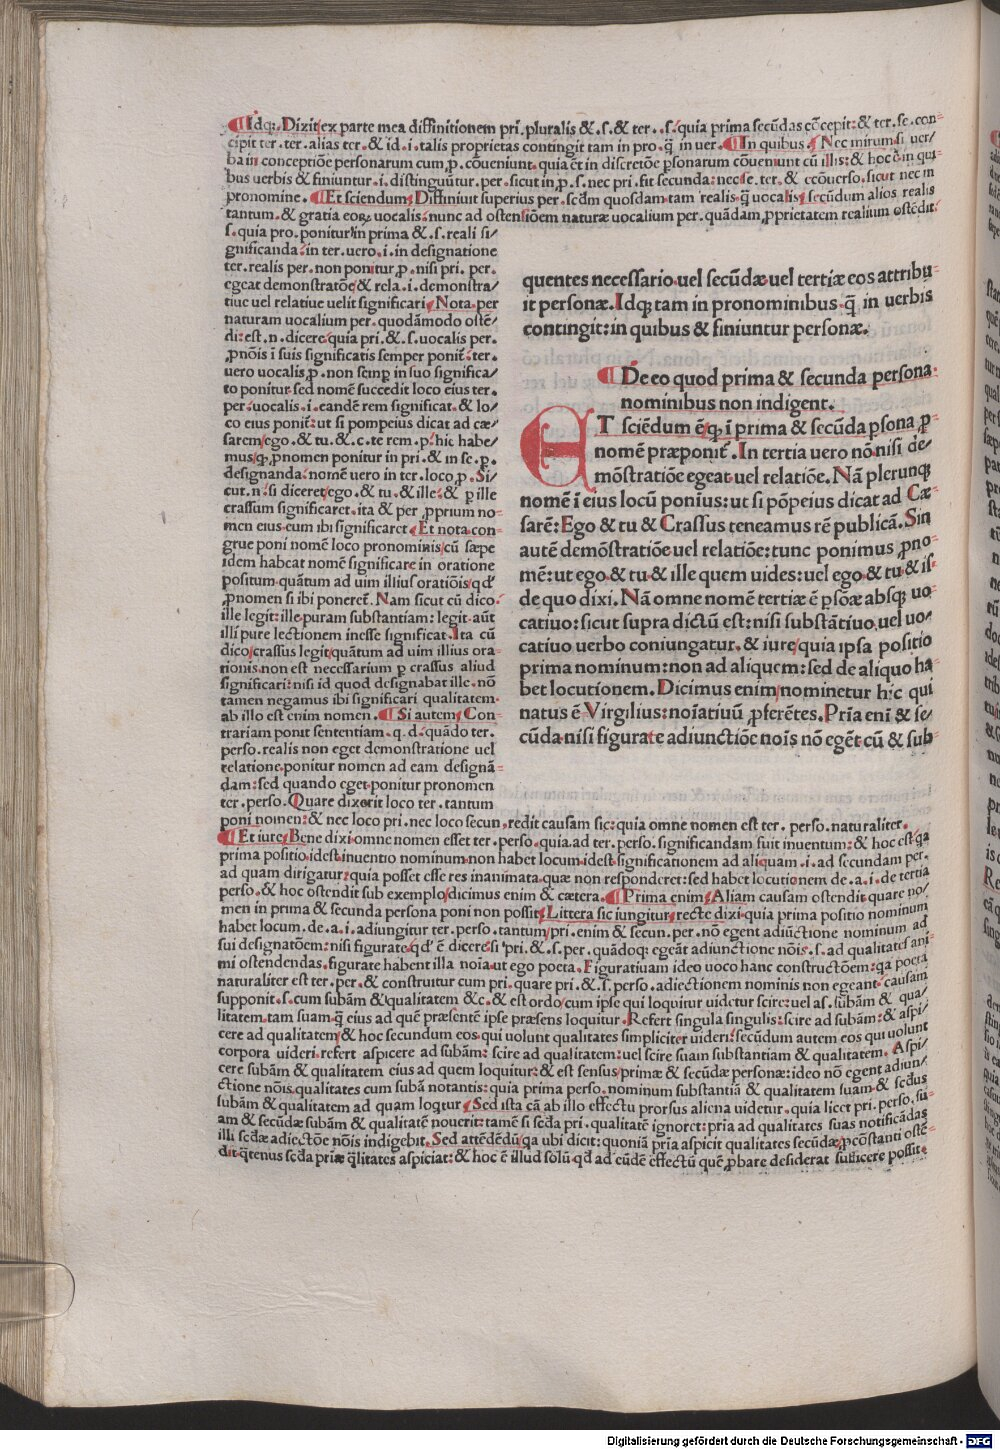 ¶Idq;. Dixit ex parte mea diffinitionem pri. pluralis &. s. & ter. . s. quia prima secūdas cōcepit: & ter. se. con-
cipit ter. ter. alias ter. & id. i. talis proprietas contingit tam in pro. q̄ in uer. ¶In quibus. Nec mirum si uer/
ba in conceptiōe personarum cum ꝓ. cōueniunt. quia ēt in discretōe ꝑsonarum cōueniunt cū illis: & hoc ē in qui
bus uerbis & finiuntur. i. distinguūtur. per. sicut in ꝓ. s. nec pri. fit secunda: nec se. ter. & ecōuerso. sicut nec in
pronomine. ¶Et sciendum Diffiniuit superius per. scdm quosdam tam realis q̄ uocalis secūdum alios realis
tantum. & gratia eoꝝ uocalis: nunc ad ostensiōem naturæ uocalium per. quādam ꝓprietatem realium ostēdit:
s. quia pro. ponitur in prima &. s. reali si/
gnificanda: in ter. uero. i. in designatione
ter. realis per. non ponitur ꝓ. nisi pri. per.
egeat demonstratōe & rela. i. demonstra/
tiue uel relatiue uelit significari Nota per
naturam uocalium per. quodāmodo ostē/
di: est. n. dicere quia pri. &. s. uocalis per.
ꝓnōis ī suis significatis semper ponit̄: ter.
uero uocalis ꝓ. non semꝑ in suo significa/
to ponitur sed nomē succedit loco eius ter.
per. uocalis. i. eandē rem significat. & lo/
co eius ponit̄: ut si pompeius dicat ad cæ/
sarem ego. & tu. &. c. te rem. p. hic habe/
mus ꝙ ꝓnomen ponitur in pri. & in se. p.
designanda: nomē uero in ter. loco ꝓ. Si/
cut. n. si diceret ego. & tu. & ille: & ꝑ ille
crassum significaret. ita & per ꝓprium no-
men eius eum ibi significaret Et nota con-
grue poni nomē loco pronominis cū sæpe
idem habeat nomē significare in oratione
positum quātum ad uim illius oratiōis qd̄
ꝓnomen si ibi poneret̄. Nam sicut cū dico:
ille legit: ille puram substantiam: legit aūt
illi pure lectionem inesse significat. Ita cū
dico crassus legit quātum ad uim illius ora-
tionis non est necessarium ꝑ crassus aliud
significari: nisi id quod designabat ille. nō
tamen negamus ibi significari qualitatem
ab illo est enim nomen. ¶Si autem Con-
trariam ponit sententiam. q. d. quādo ter.
perso. realis non eget demonstratione uel
relatione ponitur nomen ad eam designā-
dam: sed quando eget ponitur pronomen
ter. perso. Quare dixerit loco ter. tantum
poni nomen: & nec loco pri. nec loco secun. redit causam sic: quia omne nomen est ter. perso. naturaliter.
¶Et iure Bene dixi omne nomen esset ter. perso. quia ad ter. perso. significandam fuit inuentum: & hoc est ꝗa
prima positio idest inuentio nominum non habet locum idest significationem ad aliquam. i. ad secundam per.
ad quam dirigatur: quia posset esse res inanimata quæ non responderet: sed habet locutionem de. a. i. de tertia
perso. & hoc ostendit sub exemplo dicimus enim & cætera. ¶Prima enim Aliam causam ostendit quare no/
men in prima & secunda persona poni non possit Littera sic iungitur recte dixi quia prima positio nominum
habet locum. de. a. i. adiungitur ter. perso. tantum pri. enim & secun. per. nō egent adiūctione nominum ad
sui designatōem: nisi figurate qd̄ ē dicere si pri. &. s. per. quādoq; egeāt adiunctione nōis. s. ad qualitates ani-
mi ostendendas. figurate habent illa noīa ut ego poeta. Figuratiuam ideo uoco hanc constructōem: ꝗa poeta
naturaliter est ter. per. & construitur cum pri. quare pri. &. s. perso. adiectionem nominis non egeant causam
supponit. s. cum subām & qualitatem &c. & est ordo cum ipse qui loquitur uidetur scire: uel as. subām & qua/
litatem tam suam q̄ eius ad quē præsentē ipse præsens loquitur. Refert singula singulis: scire ad subām: & aspi/
cere ad qualitatem & hoc secundum eos qui uolunt qualitates simpliciter uideri: secūdum autem eos qui uolunt
corpora uideri. refert aspicere ad subām: scire ad qualitatem: uel scire suam substantiam & qualitatem. Aspi/
cere subām & qualitatem eius ad quem loquitur: & est sensus primæ & secūdæ personæ: ideo nō egent adiun/
ctione nōis qualitates cum subā notantis: quia prima perso. nominum substantiā & qualitatem suam & secdus
subām & qualitatem ad quam loqtur Sed ista cā ab illo effectu prorsus aliena uidetur. quia licet pri. perso. su-
am & secūdæ subām & qualitatē nouerit: tamē si secda pri. qualitatē ignoret: pria ad qualitates suas notificādas
illi secdæ adiectōe nōis indigebit. Sed attēdēdū ꝗa ubi dicit: quoniā pria aspicit qualitates secūdæ ꝓcōstanti ostē-
dit qtenus secda priæ q̄litates aspiciat: & hoc ē illud solū qd̄ ad eūdē effectū quē ꝓbare desiderat sufficere possit.
quentes necessario uel secūdæ uel tertiæ eos attribu-
it personæ. Idq; tam in pronominibus q̄ in uerbis
contingit: in quibus & finiuntur personæ.
¶De eo quod prima & secunda persona
nominibus non indigent.
ET sciēdum ē ꝙ ī prima & secūda ꝑsona ꝓ-
nomē præponit̄. In tertia uero nō nisi de/
mōstratiōe egeat uel relatiōe. Nā plerunq;
nomē ī eius locū ponius: ut si pōpeius dicat ad Cæ-
sarē: Ego & tu & Crassus teneamus rē publicā. Sin
autē demōstratiōe uel relatiōe: tunc ponimus ꝓno-
mē: ut ego & tu & ille quem uides: uel ego & tu & is
de quo dixi. Nā omne nomē tertiæ ē ꝑsōæ absq; uo-
catiuo: sicut supra dictū est: nisi substātiuo uel uo/
catiuo uerbo coniungatur. & iure quia ipsa positio
prima nominum: non ad aliquem: sed de aliquo ha-
bet locutionem. Dicimus enim nominetur hic qui
natus ē Virgilius: noīatiuū ꝓferētes. Prīa enī & se/
cūda nisi figurate adiunctiōe noīs nō egēt cū & sub-
Digitalisierung gefördert durch die Deutsche Forschungsgemeinschaft - DFG